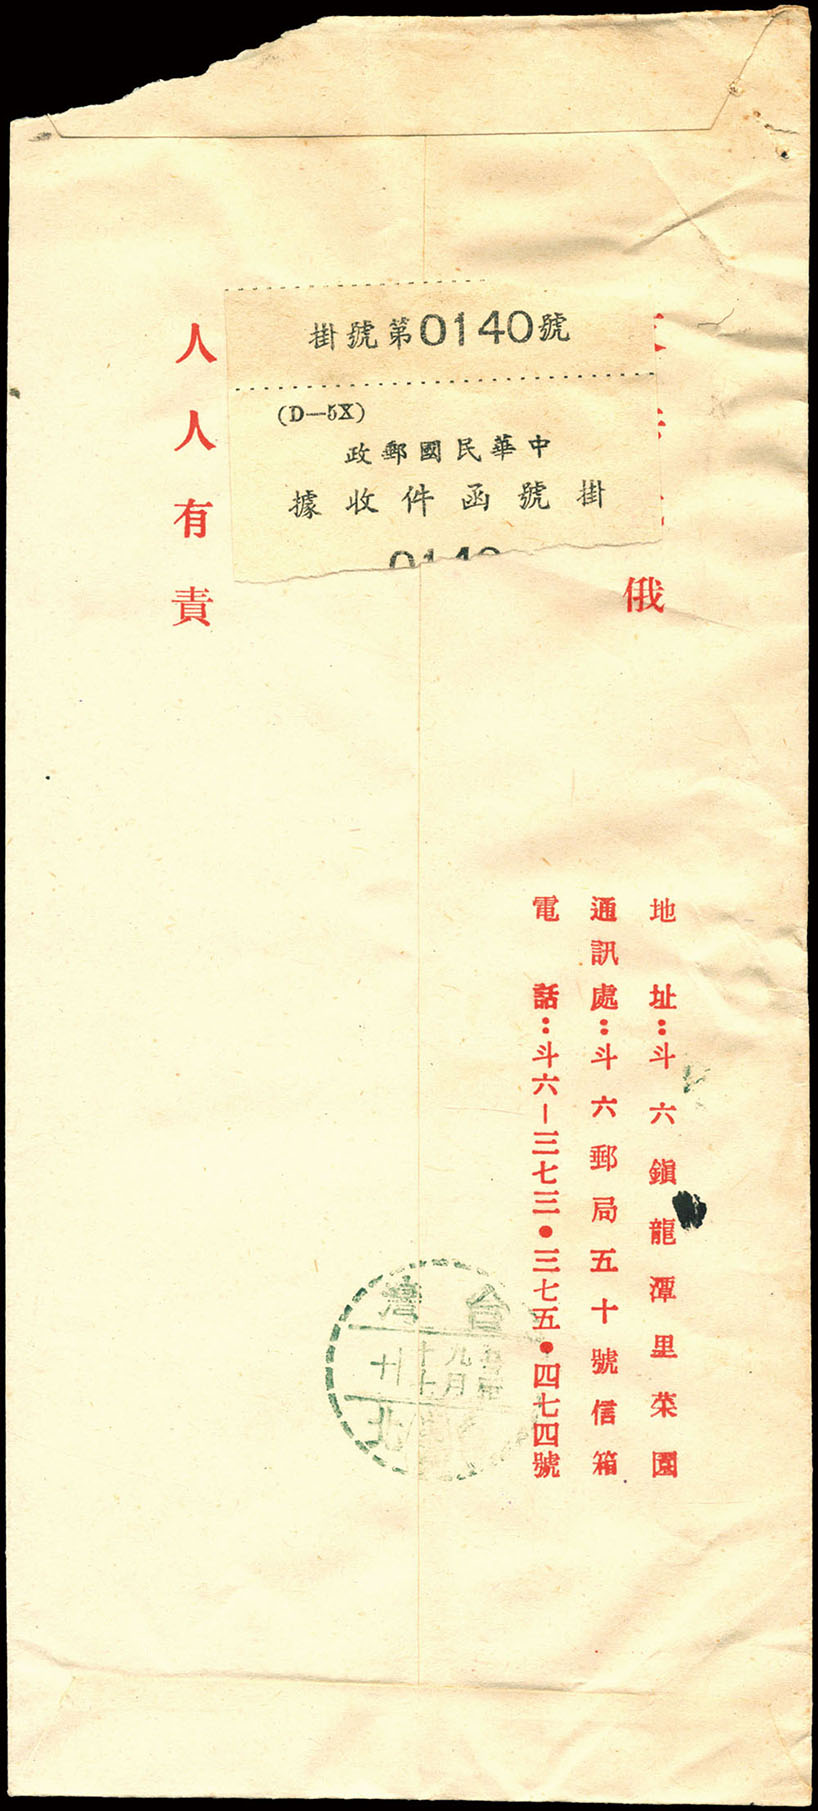 掛號第0140號
(D—5X)
中華民國郵政
掛號函件收據
0140
俄
人人有責
地址:斗六鎭龍潭里菜園
通訊處:斗六郵局五十號信箱
電話:斗六-三七三•三七五•四七四號
台灣
北